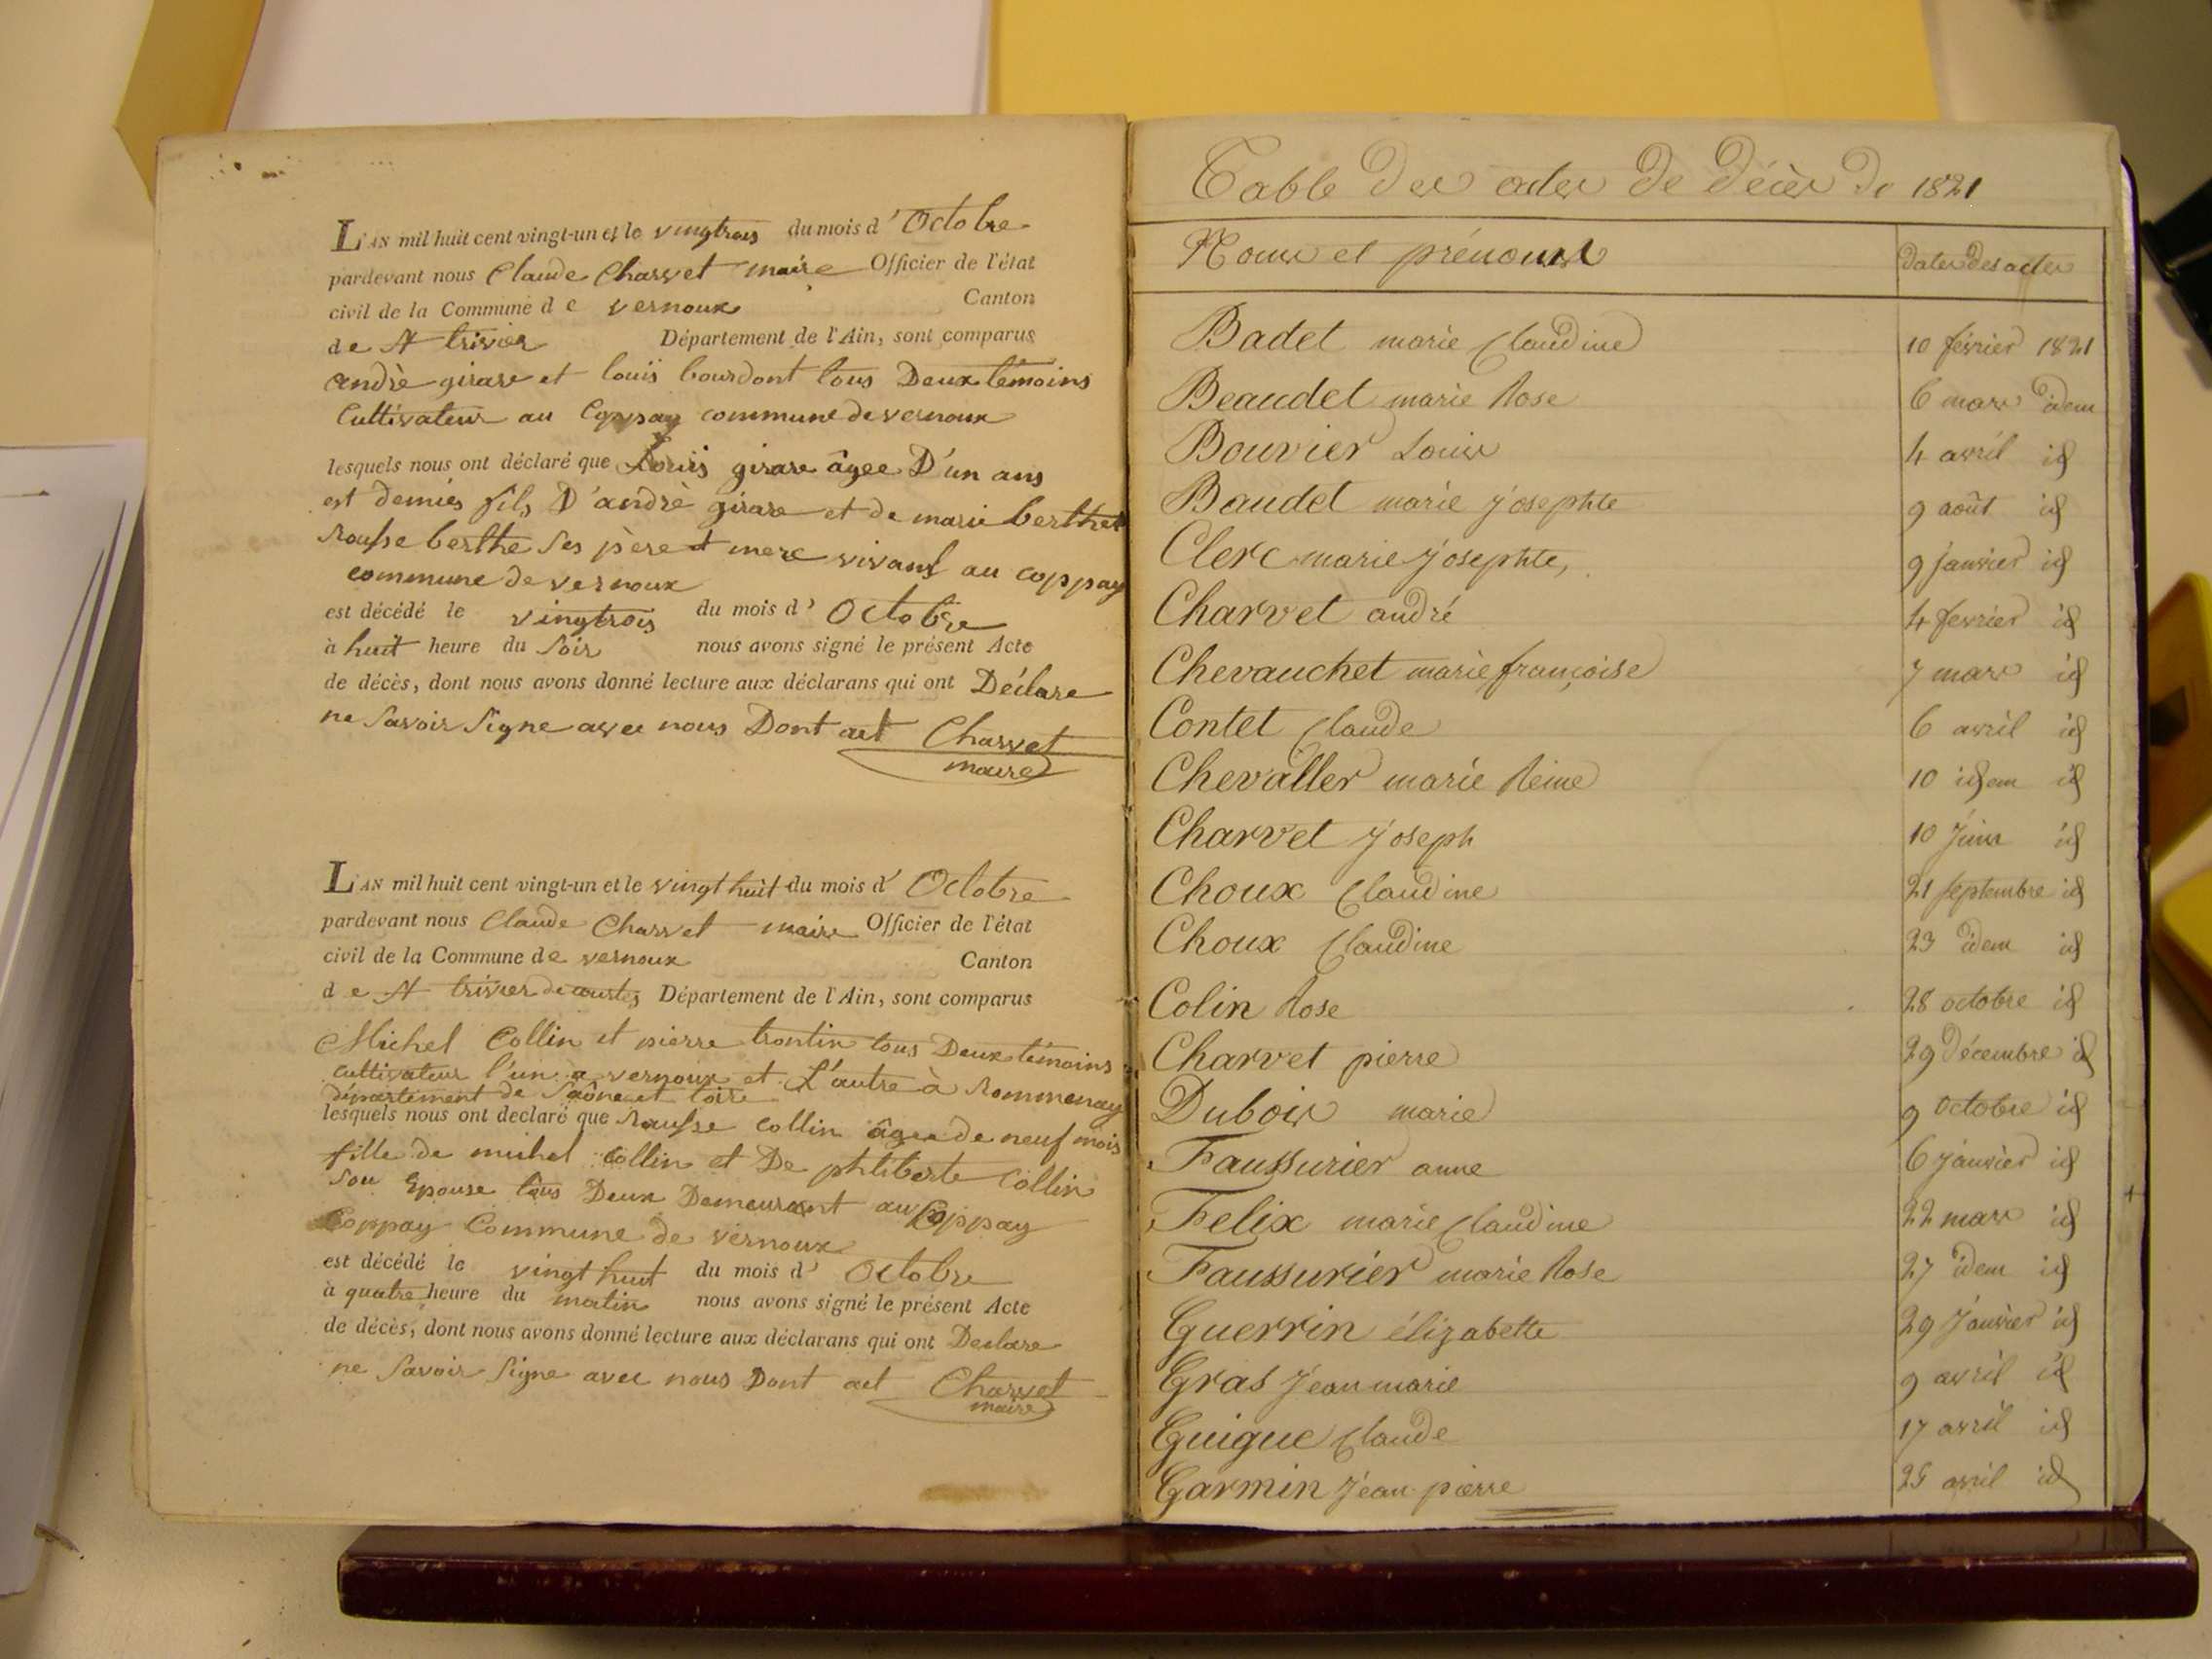 L'AN mil huit cent vingt-un et le vingtrois du mois d' Octobre
pardevant nous Claude Charvet maire Officier de l'état
civil de la Commune de vernoux Canton
de St trivier Département de l'Ain, sont comparus
andrè girare et louis bourdont tous Deux temoins
Cultivateur au Coppay commune de vernoux
lesquels nous ont déclaré que Louis girare âgee D'un ans
est demies fils D'andrè girare et de marie berthet
Rousse berthe Ses père et mere vivant au coppay
commune de vernoux
est décédé le vingtrois du mois d' Octobre
à huit heure du Soir nous avons signé le présent Acte
de décès, dont nous avons donné lecture aux déclarans qui ont Déclare
ne Savoir Signe avec nous Dont act Charvet
maire
L'AN mil huit cent vingt-un et le vingt huit du mois d' Octobre
pardevant nous Claude Charvet maire Officier de l'état
civil de la Commune de vernoux Canton
de St trivier de courtes Département de l'Ain, sont comparus
Michel Collin et pierre trontin tous Deux témoins
cultivateur l'un a vernoux et L'autre à Rommenay
département de Saône et loire
lesquels nous ont declaré que Rousse collin âgee de neuf mois
fille de michel collin et De philiberte Collin
Son Epouse tous Deux Demeurant au Coppay
Coppay Commune de vernoux
est décédé le vingt huit du mois d' Octobre
à quatre heure du matin nous avons signé le présent Acte
de décès, dont nous avons donné lecture aux déclarans qui ont Declare
ne Savoir Signe avec nous Dont act Charvet
maire
Table des actes de décès de 1821
Noms et prénoms dates des actes
Badet marie Claudine 10 février 1821
Beaudet marie Rose 6 mars idem
Bouvier Louis 4 avril id
Baudet marie josephte 9 août id
Clerc marie josephte, 9 janvier id
Charvet andré 4 fevrier id
Chevauchet marie françoise 7 mars id
Contet Claude 6 avril id
Chevaller marie Reine 10 idem id
Charvet joseph 10 juin id
Choux Claudine 21 septembre id
Choux Claudine 23 idem id
Colin Rose 28 octobre id
Charvet pierre 29 décembre id
Dubois marie 9 octobre id
Faussurier anne 6 janvier id
Felix marie Claudine 22 mars id
Faussurier marie Rose 27 idem id
Guerrin élizabette 29 janvier id
Gras jean marie 9 avril id
Guigue Claude 17 avril id
Garmin jean pierre 25 avril id